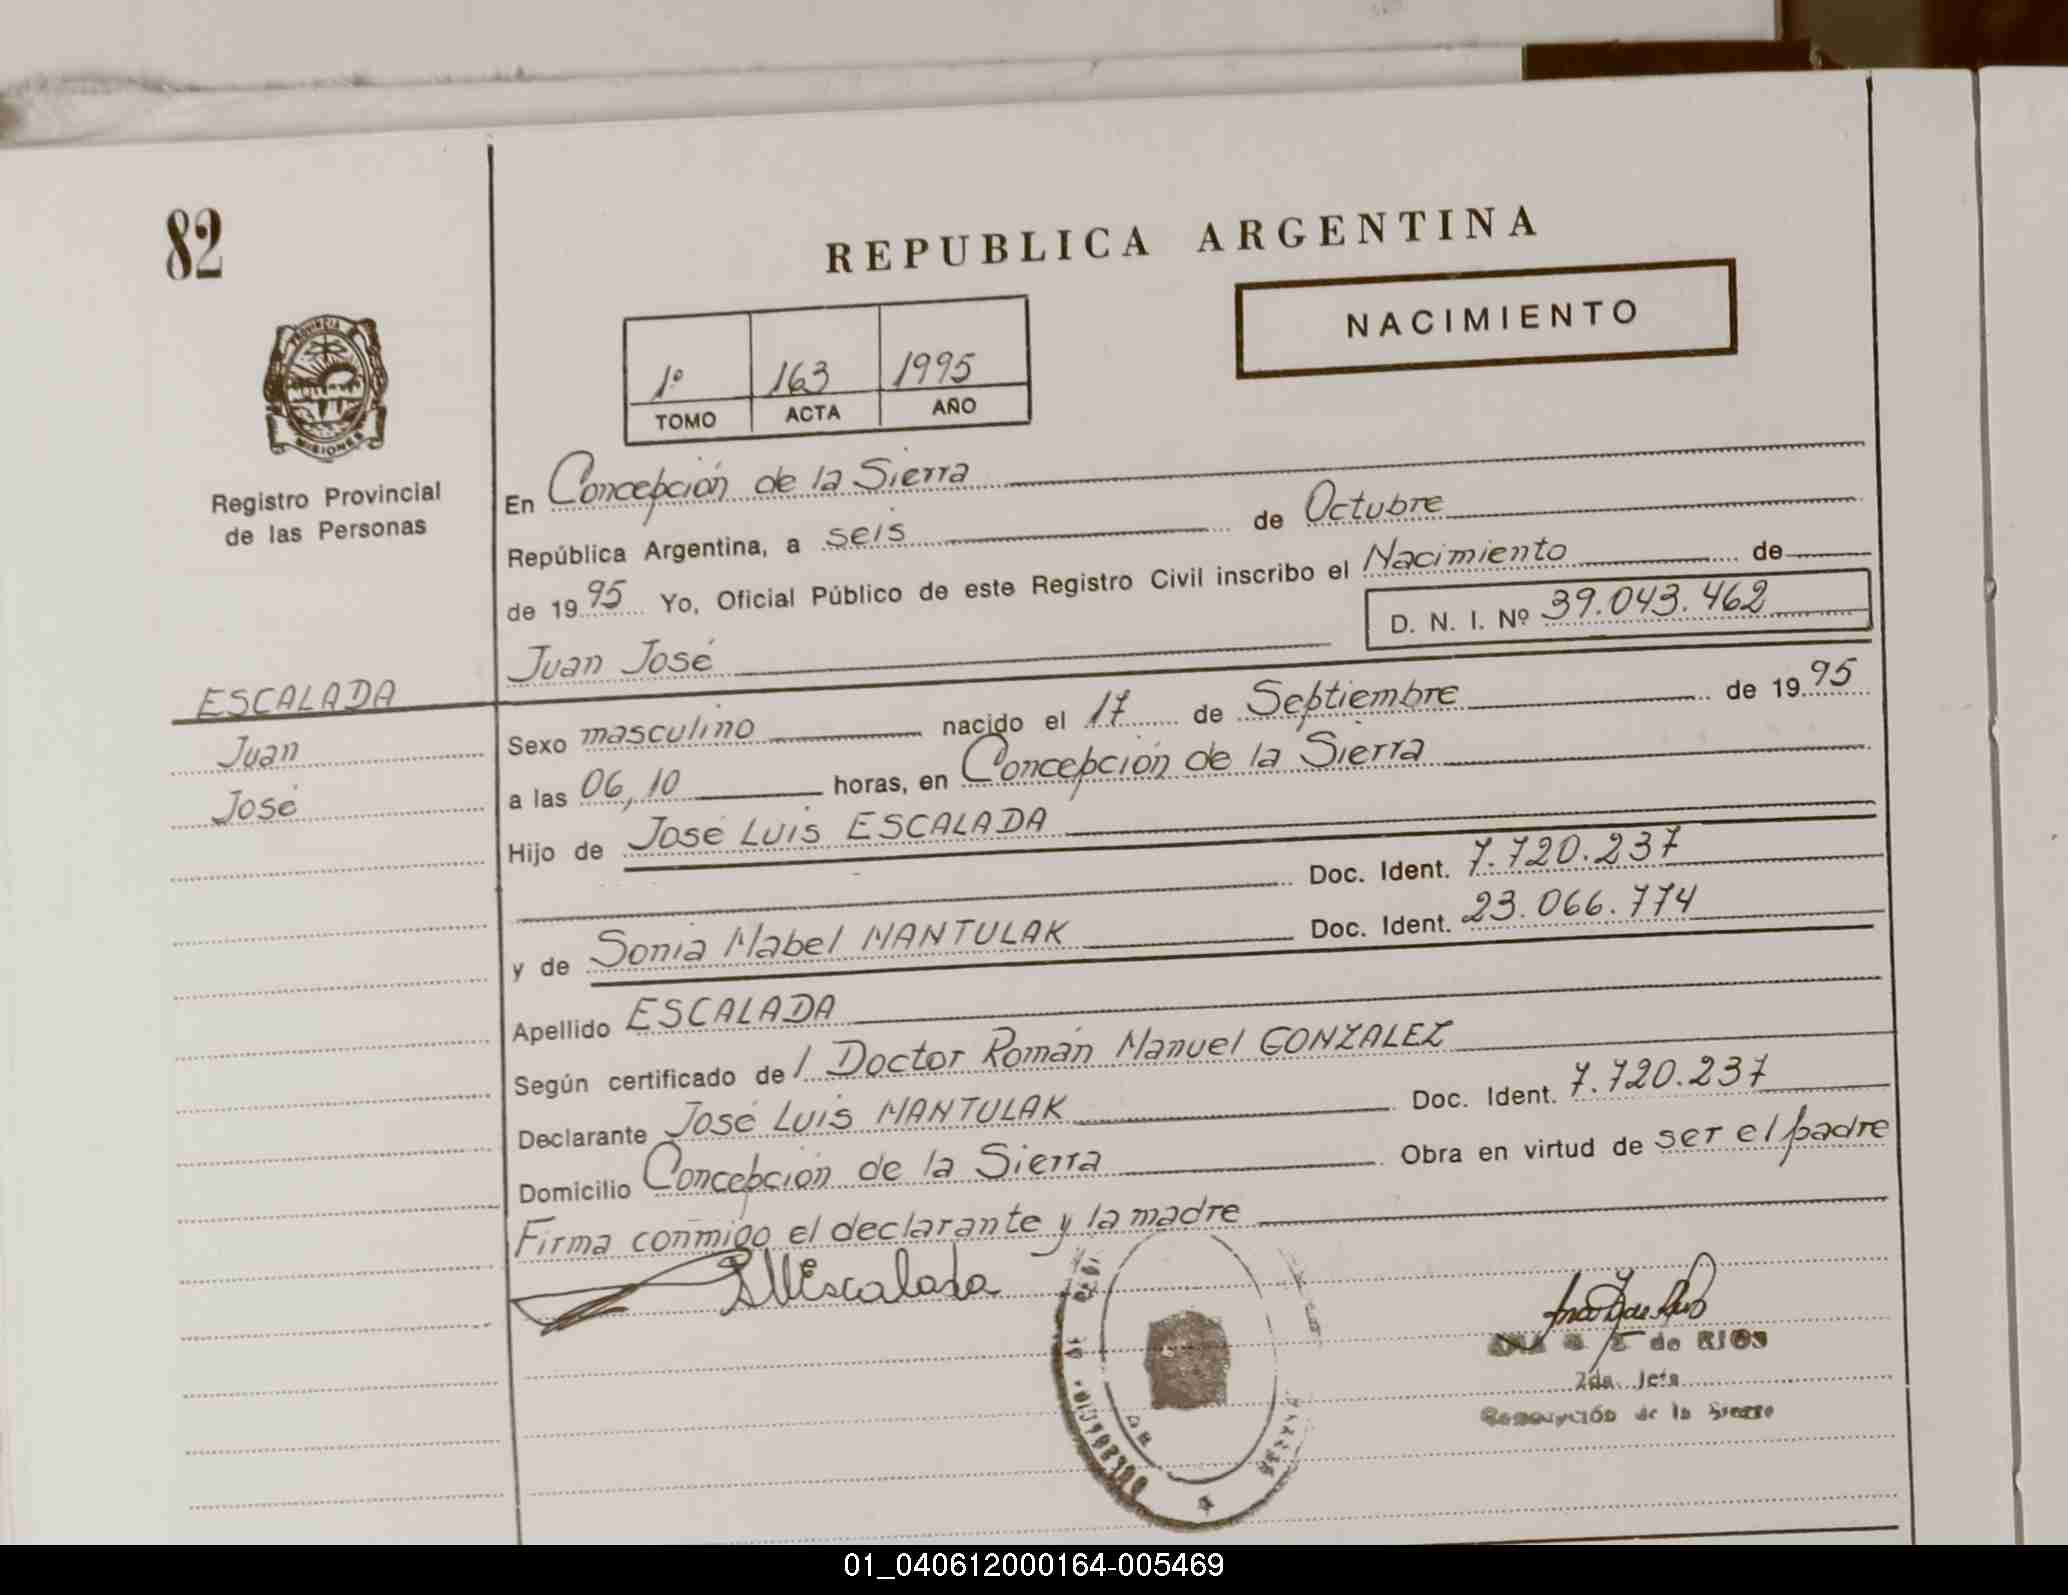 82
REPUBLICA ARGENTINA
NACIMIENTO
1º 163 1995
TOMO ACTA AÑO
PROVINCIA
MISIONES
Registro Provincial
de las Personas
En Concepción de la Sierra
República Argentina, a seis de Octubre
de 1995 Yo, Oficial Público de este Registro Civil inscribo el Nacimiento de
D. N. I. Nº 39.043.462
Juan José
ESCALADA
Juan
José
Sexo masculino nacido el 17 de Septiembre de 1995
a las 06,10 horas, en Concepción de la Sierra
Hijo de José Luis ESCALADA
Doc. Ident. 7.720.237
y de Sonia Mabel MANTULAK Doc. Ident. 23.066.774
Apellido ESCALADA
Según certificado del Doctor Román Manuel GONZALEZ
Declarante José Luis MANTULAK Doc. Ident. 7.720.237
Domicilio Concepción de la Sierra Obra en virtud de ser el padre
Firma conmigo el declarante y la madre
Escalada
de RIOS
2da. Jefa
Concepción de la Sierra
01_040612000164-005469